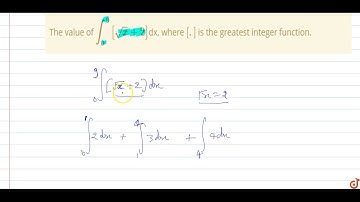 The value of ∫₀⁹ [√x + 2] dx, where [.] is the greatest integer function.
∫₀⁹ [√x + 2] dx
√x = 2
∫₀¹ 2dx + ∫₁⁴ 3dx + ∫₄ 4dx